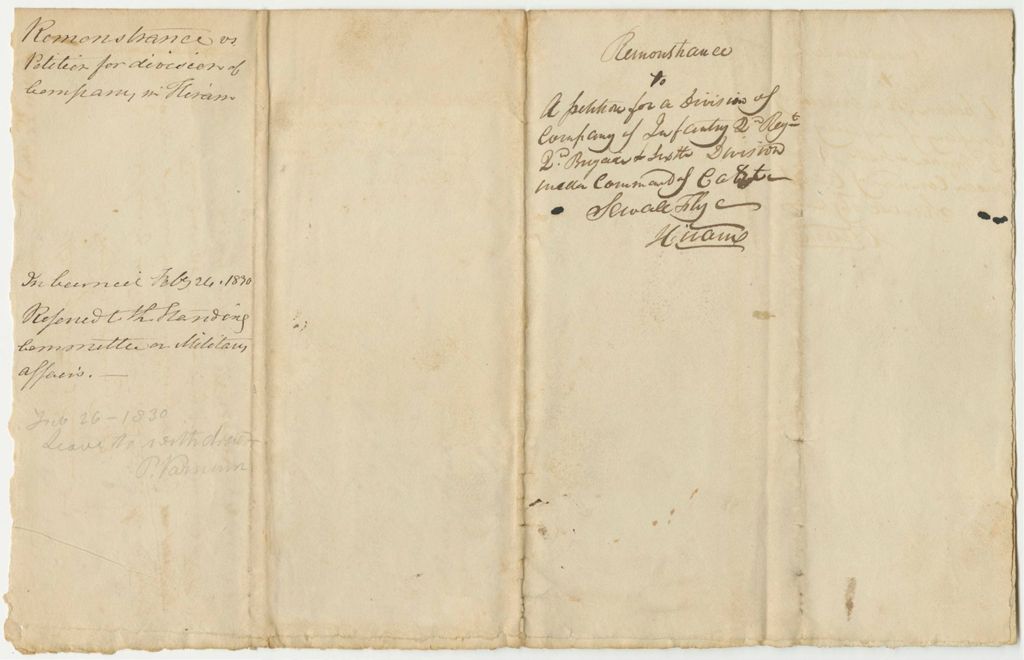 Remonstrance vs
Petition for division of
Company in Hiram
In Council Feby 24, 1830
Refered to the Standing
Committee on Military
affairs. —
Feb 26 - 1830
Leave to withdraw
P. Varnum
Remonstrance
to
A petition for a Division of
Company of Infantry 2d Regt
2d Brigade & Sixth Division
under Command of Capt
Sewall Fly
Hiram